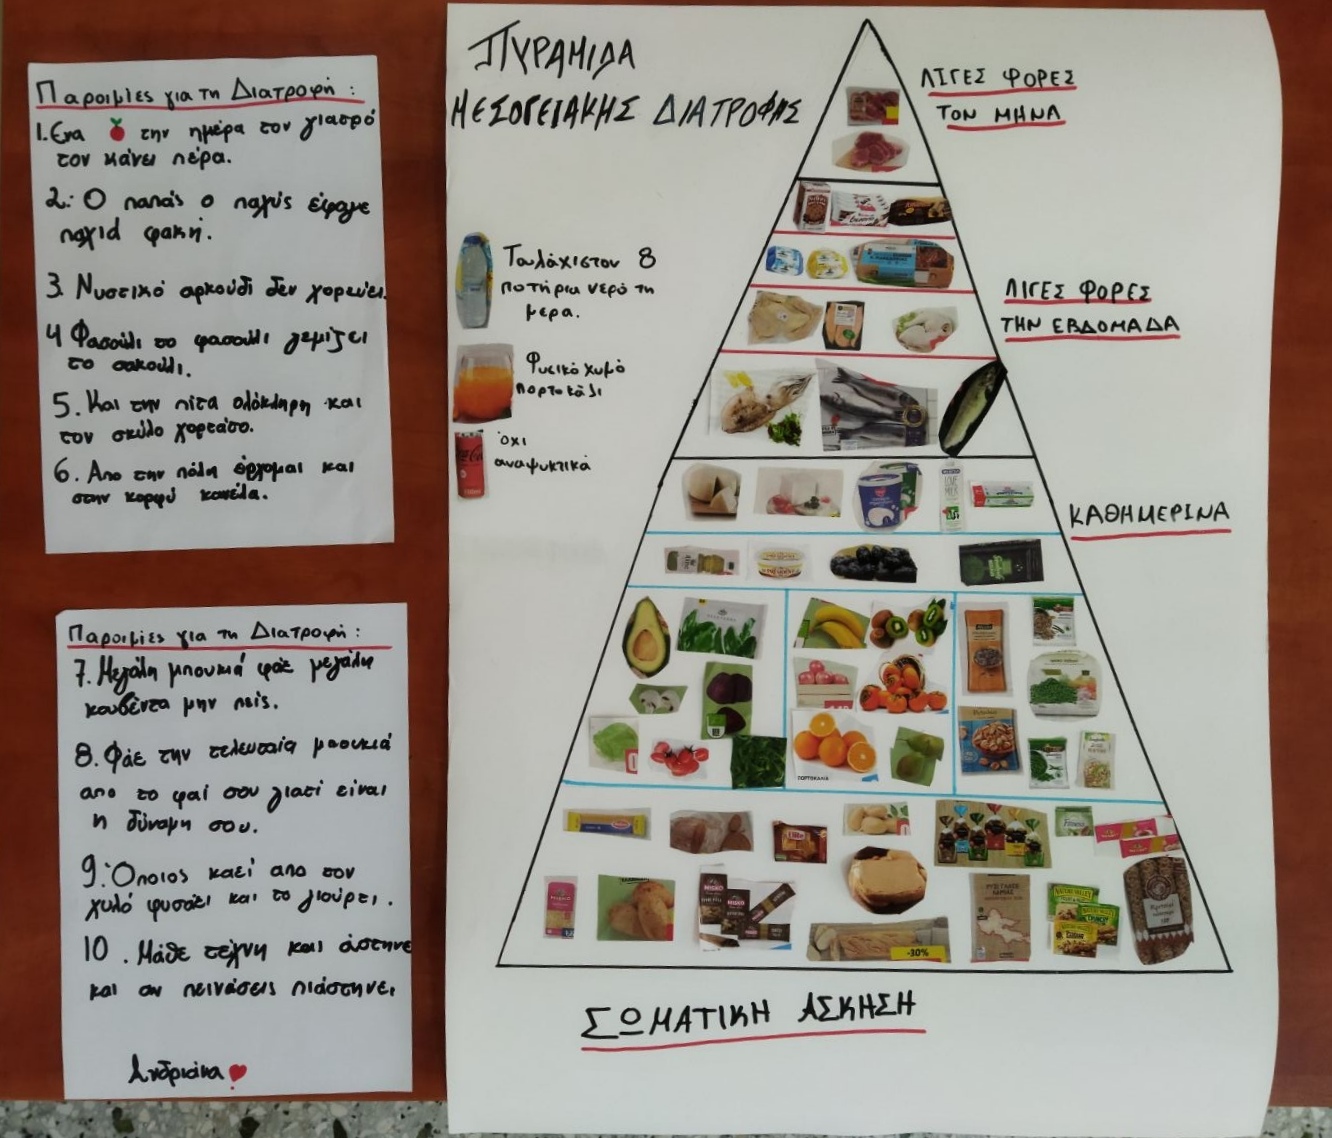 Παροιμίες για τη Διατροφή :
1. Ενα την ημέρα τον γιατρό
τον κάνει πέρα.
2. Ο παπάς ο παχύς έφαγε
παχιά φακή.
3. Νυστικό αρκούδι δεν χορεύει.
4 Φασούλι το φασούλι γεμίζει
το σακούλι.
5. Και την πίτα ολόκληρη και
τον σκύλο χορτάτο.
6. Απο την πόλη έρχομαι και
στην κορφή κανέλα.
Παροιμίες για τη Διατροφή :
7. Μεγάλη μπουκιά φάε μεγάλη
κουβέντα μην πείς.
8. Φάε την τελευταία μπουκιά
απο το φαί σου γιατί είναι
η δύναμη σου.
9. Όποιος καεί απο τον
χυλό φυσάει και το γιούρτι.
10. Μάθε τέχνη και άστηνε
και αν πεινάσεις πιάστηνε.
Ανδριάνα
ΠΥΡΑΜΙΔΑ
ΜΕΣΟΓΕΙΑΚΗΣ ΔΙΑΤΡΟΦΗΣ
Τουλάχιστον 8
ποτήρια νερό τη
μερα.
Φυσικό χυμό
πορτοκάλι
όχι
αναψυκτικά
ΛΙΓΕΣ ΦΟΡΕΣ
ΤΟΝ ΜΗΝΑ
ΛΙΓΕΣ ΦΟΡΕΣ
ΤΗΝ ΕΒΔΟΜΑΔΑ
ΚΑΘΗΜΕΡΙΝΑ
ΠΟΡΤΟΚΑΛΙΑ
MISKO
MISKO
NATURE VALLEY
-30%
ΣΩΜΑΤΙΚΗ ΑΣΚΗΣΗ